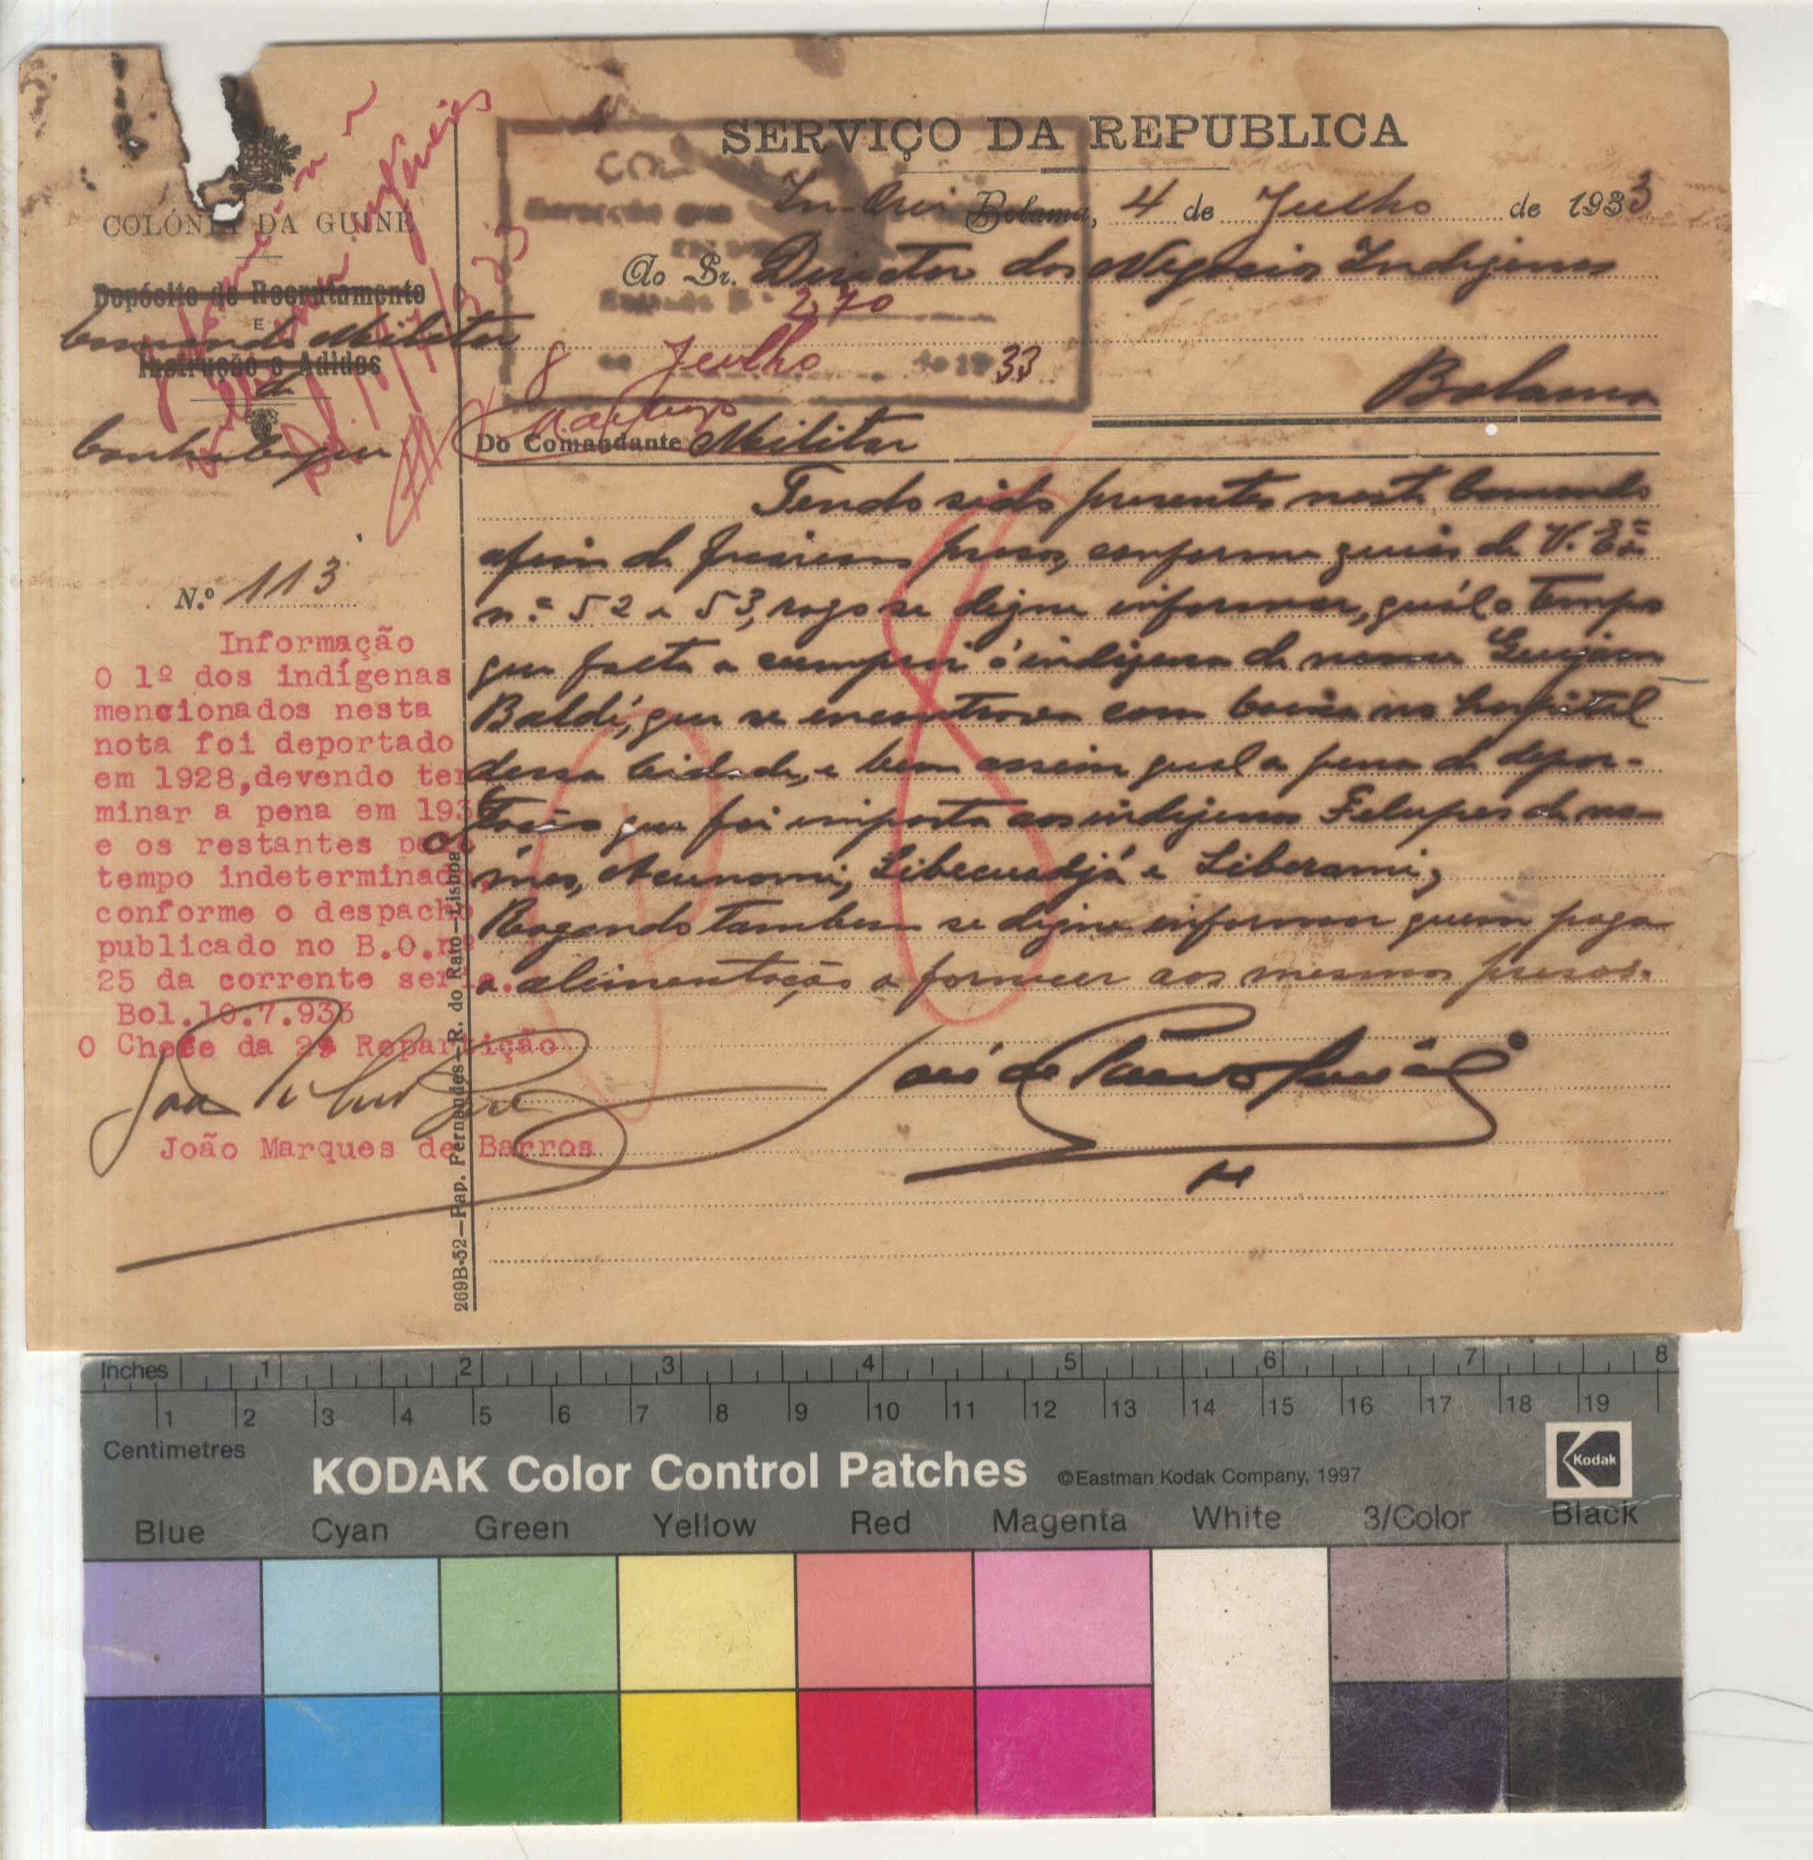 SERVIÇO DA REPUBLICA
COLÓNIA DA GUINÉ
Depósito de Recrutamento
E
Instrução e Adidos
Comando Militar
de
Canhabaque
Bolama, 4 de Julho de 1933
Ao Sr. Director dos Negocios Indigenas
270
8 Julho de 1933
Bolama
Do Comandante Militar
N.º 113
Tendo sido presentes neste Comando
afim de ficarem presos, conforme guias de V. Exª
n.º 52 e 53, rogo se digne informar, qual o tempo
que falta a cumprir ó indigena de nome
Baldé, que se encontrava com baixa no hospital
dessa cidade, e bem assim qual a pena de depor-
tação que foi imposta aos indigenas Felupes de no-
mes, Acunomi, Libecuadjá e Liberami;
Rogando tambem se digne informar quem paga
a alimentação a fornecer aos mesmos presos.
José de
Informação
O 1º dos indígenas
mencionados nesta
nota foi deportado
em 1928,devendo ter
minar a pena em 193
e os restantes por
tempo indeterminado,
conforme o despacho
publicado no B.O.nº
25 da corrente serie.
Bol.10.7.933
O Chefe da 2ª Repartição
João Marques de Barros
269B-52—Pap. Fernandes—R. do Rato—Lisboa
Inches 1 2 3 4 5 6 7 8
1 2 3 4 5 6 7 8 9 10 11 12 13 14 15 16 17 18 19
Centimetres
KODAK Color Control Patches ©Eastman Kodak Company, 1997
Kodak
Blue Cyan Green Yellow Red Magenta White 3/Color Black